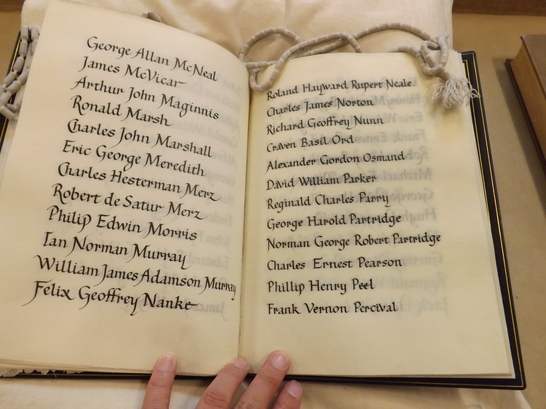 George Allan McNeal
James McVicar
Arthur John Maginnis
Ronald Marsh
Charles John Marshall
Eric George Meredith
Charles Hesterman Merz
Robert de Satur Merz
Philip Edwin Morris
Ian Norman Murray
William James Adamson Murray
Felix Geoffrey Nanke
Roland Hayward Rupert Neale
Charles James Norton
Richard Geoffrey Nunn
Craven Basil Ord
Alexander Gordon Osmand
David William Parker
Reginald Charles Parry
George Harold Partridge
Norman George Robert Partridge
Charles Ernest Pearson
Phillip Henry Peel
Frank Vernon Percival